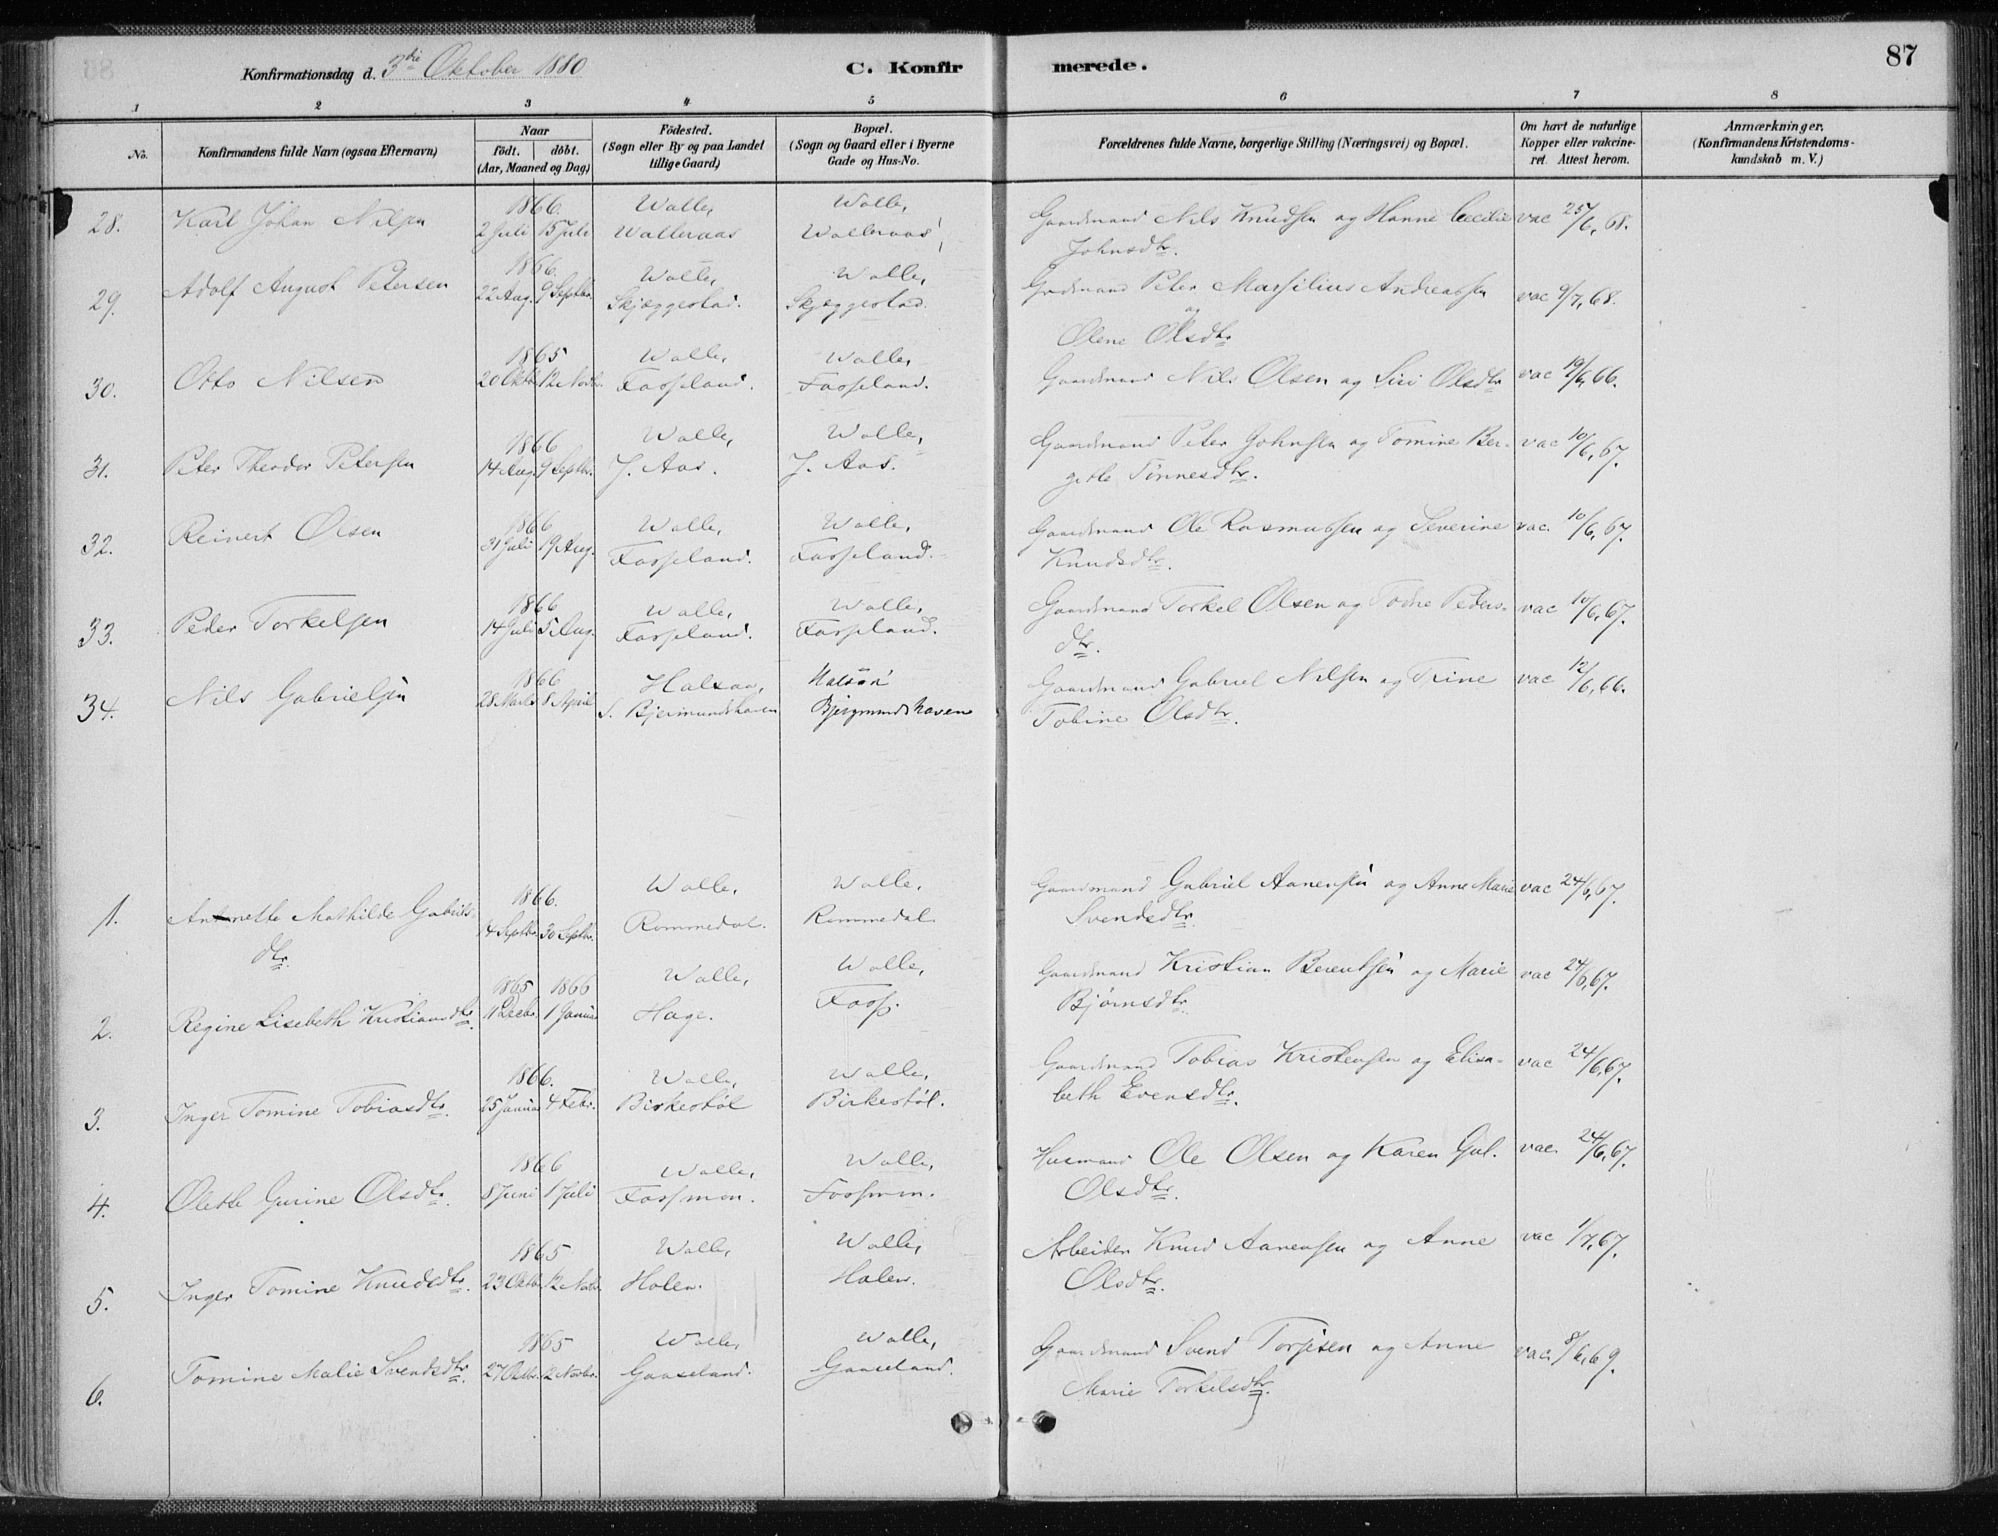 Konfirmationsdag d. 3die Oktober 1880
C. Konfirmerede.
87
1 2 3 4 5 6 7 8
No.
Konfirmandens fulde Navn (ogsaa Efternavn)
Naar
født. døbt.
(Aar, Maaned og Dag)
Födested.
(Sogn eller By og paa Landet
tillige Gaard)
Bopæl.
(Sogn og Gaard eller i Byerne
Gade og Hus-No.
Forældrenes fulde Navne, borgerlige Stilling (Næringsvei) og Bopæl.
Om havt de naturlige
Kopper eller vakcine-
ret. Attest herom.
Anmærkninger.
(Konfirmandens Kristendoms-
kundskab m. V.)
1866. Walle, Walle,
28. Karl Johan Nilsen 2 Juli 15 Juli Walleraas Walleraas Gaardmand Nils Knudsen og Hanne Cecilie vac 25/6, 68.
Johnsdtr.
1866. Walle, Walle,
29. Adolf August Petersen 22 Aug. 9 Septbr. Skjæggestad. Skjæggestad. Grdmand Peter Marsilius Andreassen vac 9/7, 68.
og
Olene Olsdtr
1865 Walle, Walle,
30. Otto Nilsen 20 Oktbr 12 Novbr. Fosseland. Fosseland. Gaardmand Nils Olsen og Siri Olsdtr vac 19/6, 66.
1866 Walle, Walle,
31. Peter Theodor Petersen 14 Aug. 9 Septbr. J. Aas. J. Aas. Gaardmand Peter Johnsen og Tomine Ber- vac 10/6, 67.
gitte Tønnesdtr.
1866 Walle, Walle,
32. Reinert Olsen 31 Juli 19 Aug. Fosseland. Fosseland. Gaardmand Ole Rasmussen og Severine vac. 10/6, 67.
Knudsdtr.
1866 Walle, Walle,
33. Peder Torkelsen 14 Juli 5 Aug. Fosseland. Fosseland. Gaardmand Torkel Olsen og Todne Peders- vac 10/6, 67.
dtr.
1866 Halsaa, Halsaa
34. Nils Gabrielsen 28 Marts 8 April S. Bjermundshaven Bjermundshaven Gaardmand Gabriel Nilsen og Trine vac 12/6, 66.
Tobine Olsdtr.
1866. Walle, Walle,
1. Antonette Mathilde Gabriels- 14 Septbr. 30 Septbr. Rommedal. Rommedal. Gaardmand Gabriel Aanensen og Anne Marie vac 24/6, 67.
dtr. Svendsdtr.
1865 1866 Walle, Walle,
2. Regine Lisebeth Kristiansdtr. 11 Decbr. 1 Januar Hage. Foss. Gaardmand Kristian Berentsen og Marie vac 24/6, 67.
Bjørnsdtr.
1866. Walle, Walle,
3. Inger Tomine Tobiasdtr. 25 Januar 4 Febr. Birkestøl Birkestøl. Gaardmand Tobias Kristensen og Elisa- vac 24/6, 67.
beth Evensdtr.
1866 Walle, Walle,
4. Olette Gurine Olsdtr. 8 Juni 1 Juli Fossmon. Fossmon. Husmand Ole Olsen og Karen Gul. vac. 24/6, 67.
Olsdtr.
1865 Walle, Walle,
5. Inger Tomine Knudsdtr. 23 Oktbr. 12 Novbr. Holen. Holen. Arbeider Knud Aanensen og Anne vac 1/7, 67.
Olsdtr.
1865 Walle, Walle,
6. Tomine Malie Svendsdtr. 27 Oktbr. 12 Novbr. Gaaseland. Gaaseland. Gaardmand Svend Torjisen og Anne vac. 8/6, 69.
Marie Torkelsdtr.